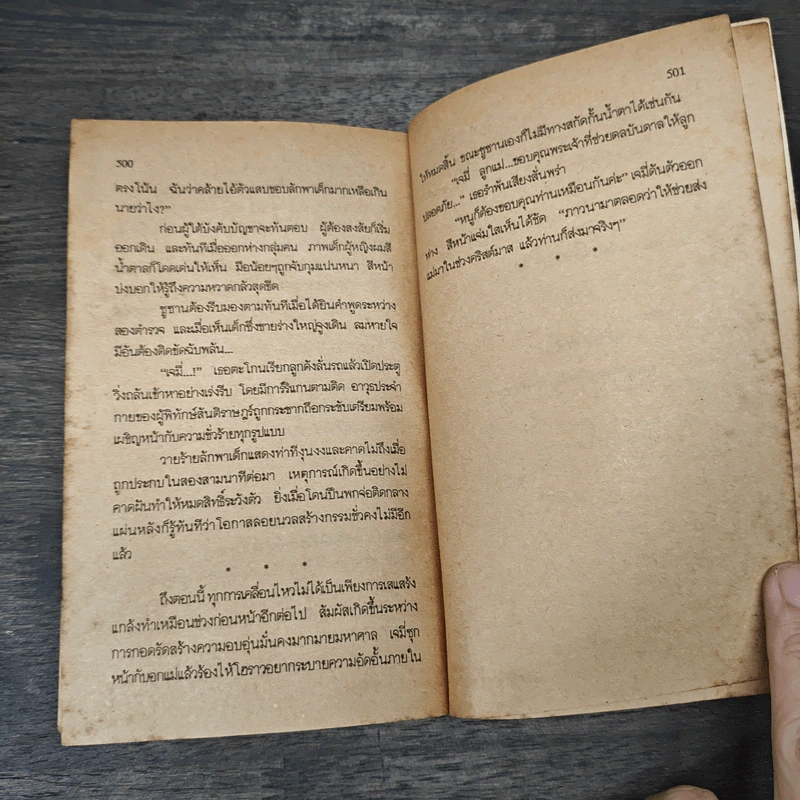 500
ตรงโน้น ฉันว่าคล้ายไอ้ตัวแสบชอบลักพาเด็กมากเหลือเกิน
นายว่าไง?”
ก่อนผู้ใต้บังคับบัญชาจะทันตอบ ผู้ต้องสงสัยก็เริ่ม
ออกเดิน และทันทีเมื่อออกห่างกลุ่มคน ภาพเด็กผู้หญิงผมสี
น้ำตาลก็โดดเด่นให้เห็น มือน้อยๆถูกจับกุมแน่นหนา สีหน้า
บ่งบอกให้รู้ถึงความหวาดกลัวสุดขีด
ซูซานต้องรีบมองตามทันทีเมื่อได้ยินคำพูดระหว่าง
สองตำรวจ และเมื่อเห็นเด็กซึ่งชายร่างใหญ่จูงเดิน ลมหายใจ
มีอันต้องติดขัดฉับพลัน...
“เจมี่...!” เธอตะโกนเรียกลูกดังลั่นรถแล้วเปิดประตู
วิ่งถลันเข้าหาอย่างเร่งรีบ โดยมีการ์ริแกนตามติด อาวุธประจำ
กายของผู้พิทักษ์สันติราษฎร์ถูกกระชากถือกระชับเตรียมพร้อม
เผชิญหน้ากับความชั่วร้ายทุกรูปแบบ
วายร้ายลักพาเด็กแสดงท่าทีงุนงงและคาดไม่ถึงเมื่อ
ถูกประกบในสองสามนาทีต่อมา เหตุการณ์เกิดขึ้นอย่างไม่
คาดฝันทำให้หมดสิทธิ์ระวังตัว ยิ่งเมื่อโดนปืนพกจ่อติดกลาง
แผ่นหลังก็รู้ทันทีว่าโอกาสลอยนวลสร้างกรรมชั่วคงไม่มีอีก
แล้ว
* * *
ถึงตอนนี้ ทุกการเคลื่อนไหวไม่ได้เป็นเพียงการเสแสร้ง
แกล้งทำเหมือนช่วงก่อนหน้าอีกต่อไป สัมผัสเกิดขึ้นระหว่าง
การกอดรัดสร้างความอบอุ่นมั่นคงมากมายมหาศาล เจมี่ซุก
หน้ากับอกแม่แล้วร้องไห้โฮราวอยากระบายความอัดอั้นภายใน
501
ให้หมดสิ้น ขณะซูซานเองก็ไม่มีทางสกัดกั้นน้ำตาได้เช่นกัน
“เจมี่ ลูกแม่...ขอบคุณพระเจ้าที่ช่วยดลบันดาลให้ลูก
ปลอดภัย...” เธอรำพันเสียงสั่นพร่า
“หนูก็ต้องขอบคุณท่านเหมือนกันค่ะ” เจมี่ดันตัวออก
ห่าง สีหน้าแจ่มใสเห็นได้ชัด “ภาวนามาตลอดว่าให้ช่วยส่ง
แม่มาในช่วงคริสต์มาส แล้วท่านก็ส่งมาจริงๆ”
* * *